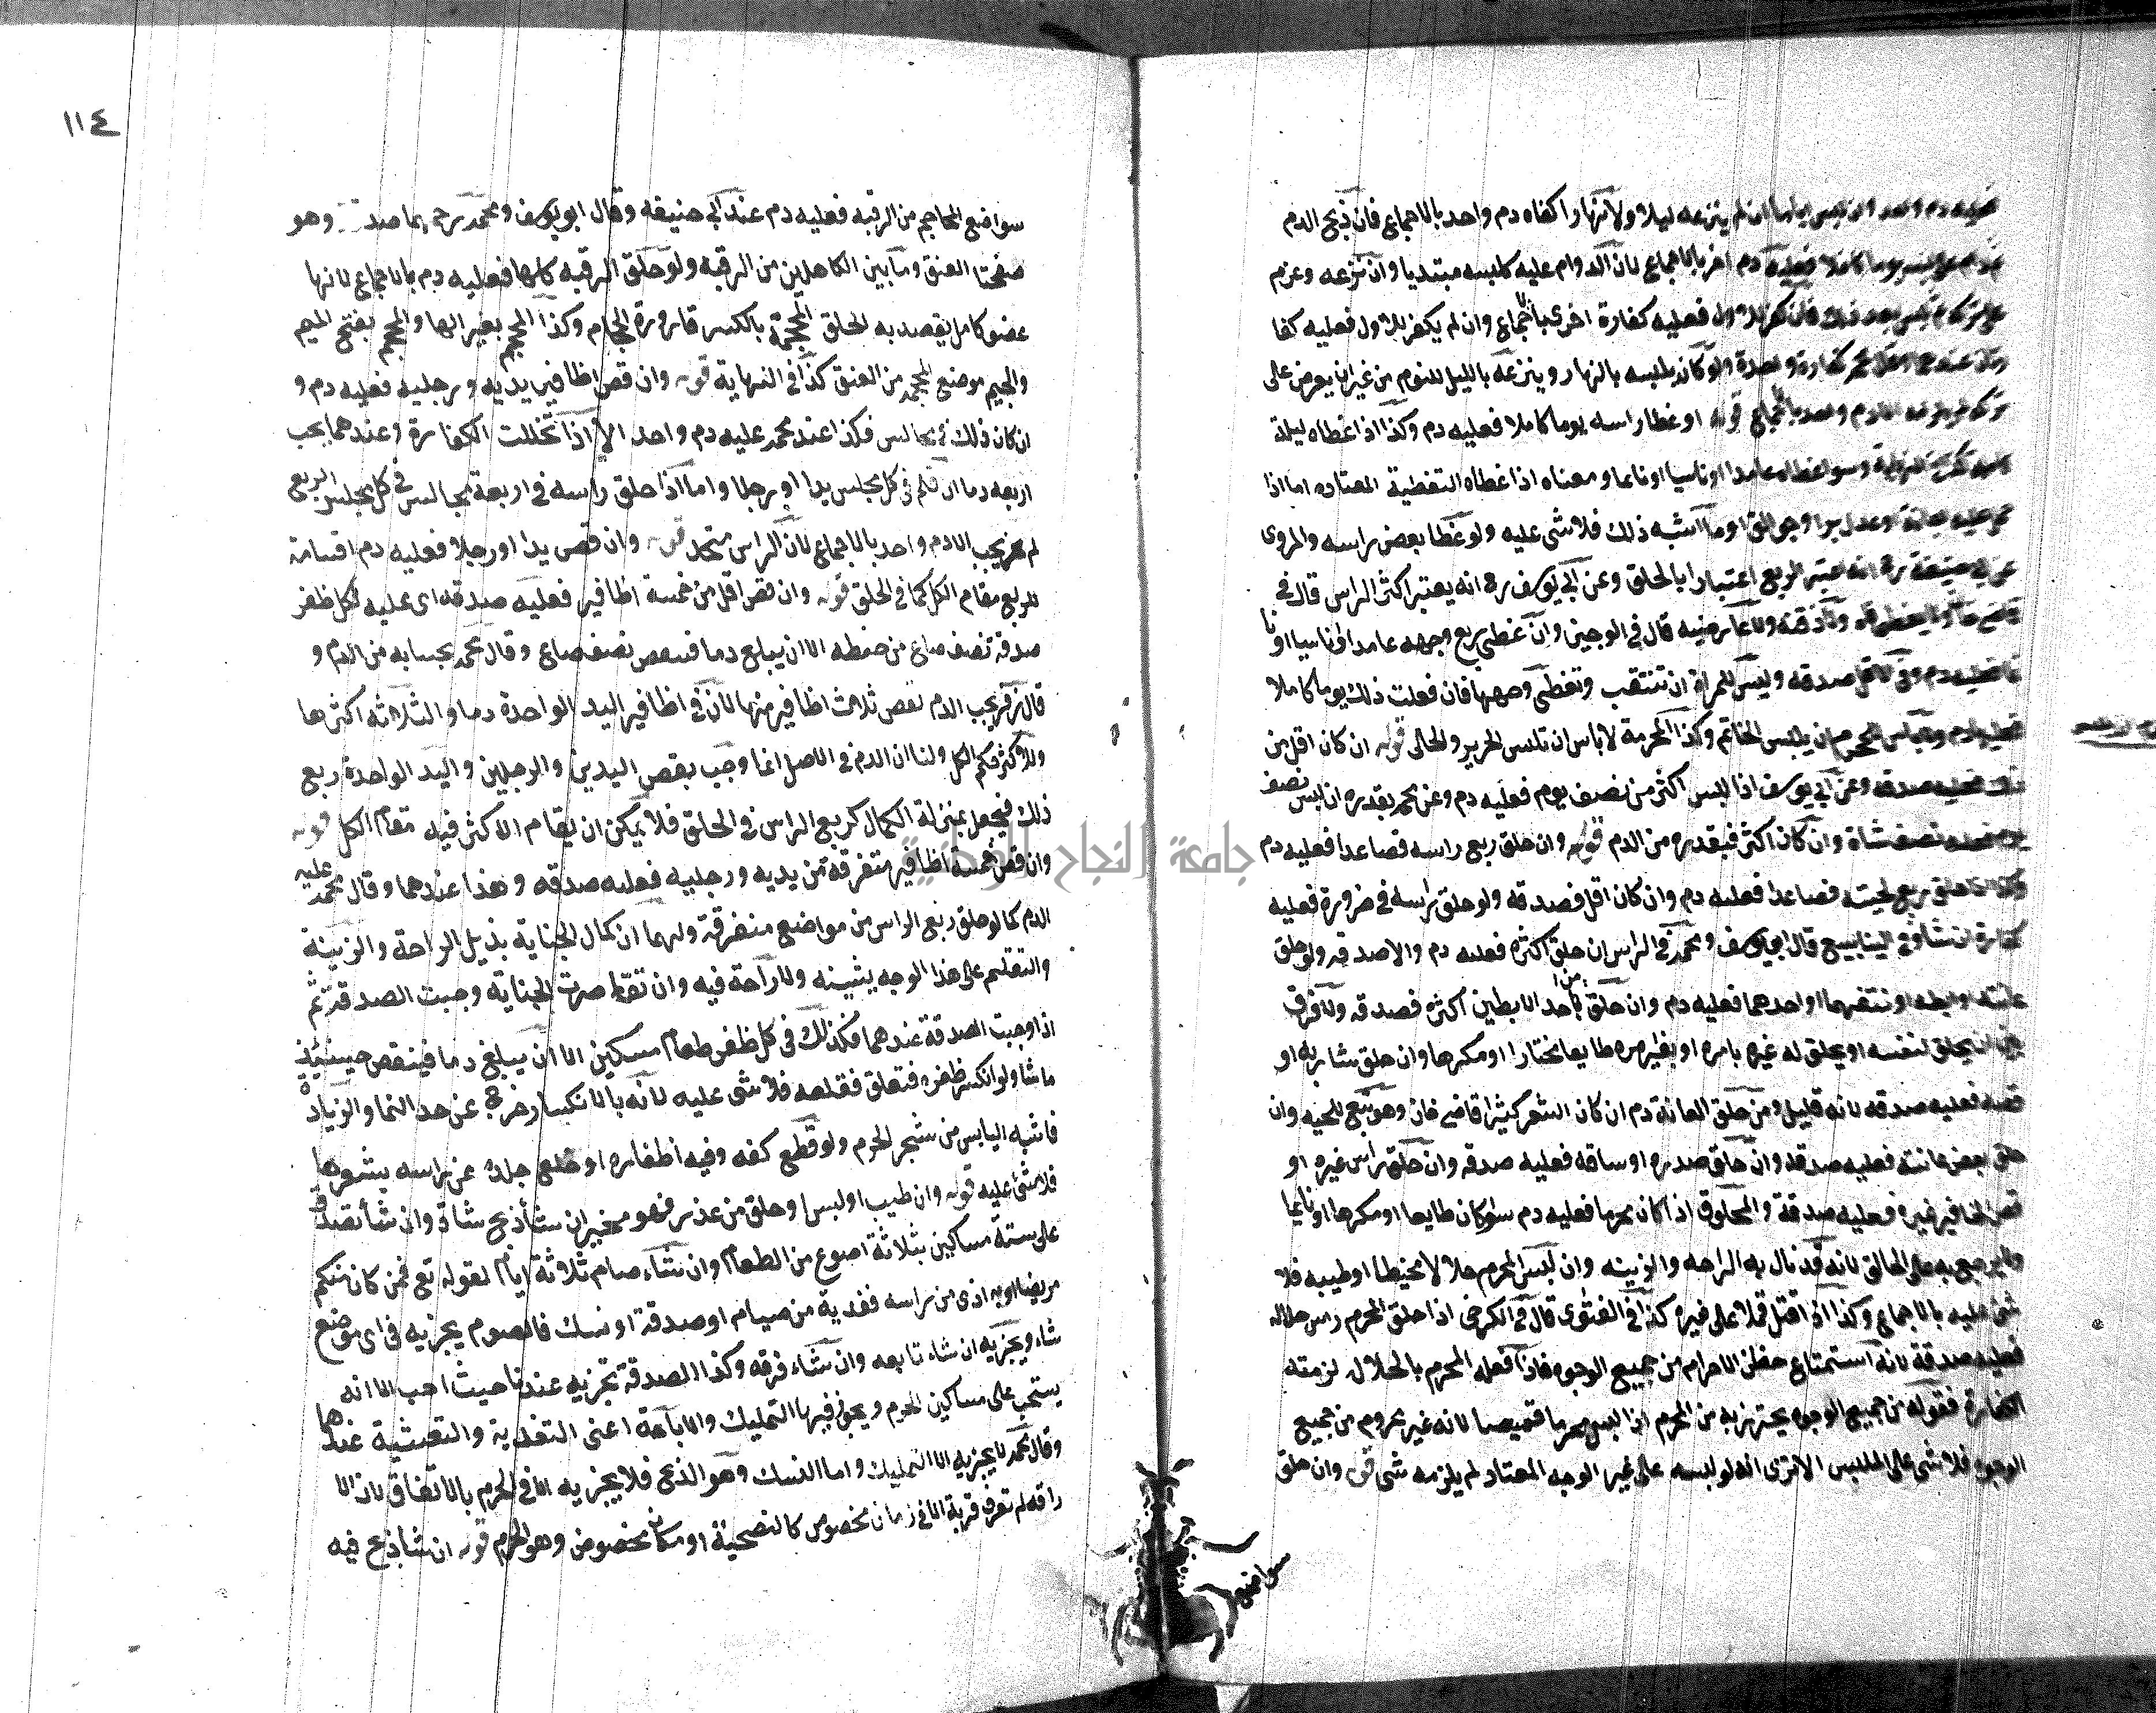 فعليه دم واحد وان لبس اياما ان لم ينزعه ليلا ولا نهارا كفاه دم واحد بالاجماع فان ذبح الدم
ثم دام على لبسه يوما كاملا فعليه دم اخر بالاجماع لان الدوام عليه كلبسه مبتديا وان نزعه وعزم
على تركه ثم لبس بعد ذلك فان كفر للاول فعليه كفارة اخرى بالاجماع وان لم يكفر للاول فعليه كفا
رتان عندهما وعند محمد كفارة واحدة ولو كان يلبسه بالنهار وينزعه بالليل للنوم من غير ان يعزم على
تركه لم يلزمه الا دم واحد بالاجماع قوله او غطا راسه يوما كاملا فعليه دم وكذا اذا غطاه ليلة
كاملة وسوا غطاه عامدا او ناسيا او نايما ومعناه اذا غطاه التغطية المعتاده اما اذا
حمل عليه اجانة او عدل بر او جوالق او ما اشبه ذلك فلا شى عليه ولو غطا بعض راسه والمروى
عن ابى حنيفة رح انه اعتبر الربع اعتبارا بالحلق وعن ابى يوسف رح انه يعتبر اكثر الراس قال في
ولا يغطى فاه ولا ذقنه ولا عارضيه قال في الوجيز وان غطى ربع وجهه عامدا او ناسيا او نا
ئما فعليه دم وفى الاقل صدقه وليس للمراة ان تنتقب وتغطى وجهها فان فعلت ذلك يوما كاملا
فعليها دم ولا باس للمحرم ان يلبس الخاتم وكذا المحرمة لا باس ان تلبس الحرير والحلى قوله ان كان اقل من
ذلك فعليه صدقه وعن ابى يوسف اذا لبس اكثر من نصف يوم فعليه دم وعن محمد بقدره ان لبس نصف
يوم فعليه نصف شاة وان كان اكثر فبقدره من الدم قوله وان حلق ربع راسه فصاعدا فعليه دم
وكذا اذا حلق ربع لحيته فصاعدا فعليه دم وان كان اقل فصدقه ولو حلق راسه في ضرورة فعليه
كفارة ان شا وفي الينابيع قال ابو يوسف ومحمد في الراس ان حلق اكثره فعليه دم والا صدقه ولو حلق
عانته او ابطه او نتفهما او احدهما فعليه دم وان حلق من احد الابطين اكثره فصدقه ولا فرق
بين ان يحلق لنفسه او يحلق له غيره بامره او بغير امره طايعا مختارا او مكرها وان حلق شاربه او
قصه فعليه صدقه لانه قليل ومن حلق العانة دم ان كان الشعر كثيرا قاضي خان وهو تبع للحيه وان
حلق بعض عانته فعليه صدقه وان حلق صدره او ساقه فعليه صدقه وان حلق راس غيره او
قص اظافير غيره فعليه صدقة والمحلوق اذا كان محرما فعليه دم سوا كان طايعا او مكرها او نايما
ولا يرجع به على الحالق لانه قد نال به الراحه والزينه وان لبس المحرم حلالا مخيطا او طيبه فلا
شى عليه بالاجماع وكذا اذا قتل قملا على غيره كذا في الفتوى قال في الكرخى اذا حلق المحرم راس حلال
فعليه صدقة لانه استمتاع حظر الاحرام من جميع الوجوه فاذا فعله المحرم بالحلال لزمته
الكفارة فقوله من جميع الوجوه يحترز به من المحرم اذا البس محرما قميصا لانه غير محروم من جميع
الوجوه فلا شى على الملبس الا ترى انه لو لبسه على غير الوجه المعتاد لم يلزمه شى قوله وان حلق
مواضع
١١٤
مواضع المحاجم من الرقبه فعليه دم عند ابى حنيفه وقال ابو يوسف ومحمد رحمهما صدقه وهو
صفحتا العنق وما بين الكاهلين من الرقبه ولو حلق الرقبه كلها فعليه دم بالاجماع لانها
عضو كامل يقصد به الحلق المحجمة بالكسر قارورة الحجام وكذا المحجم بغير الها والمحجم بفتح الميم
والجيم موضع المحجمه من العنق كذا في النهاية قوله وان قص اظافير يديه ورجليه فعليه دم و
ان كان ذلك في مجالس فكذا عند محمد عليه دم واحد الا اذا تخللت الكفارة وعندهما يجب
اربعه دما ان قلم في كل مجلس يدا او رجلا واما اذا حلق راسه في اربعة مجالس في كل مجلس الربع
لم يجب الا دم واحد بالاجماع لان الراس متحد قوله وان قص يدا او رجلا فعليه دم اقامة
للربع مقام الكل كما في الحلق قوله وان قص اقل من خمسة اظافير فعليه صدقه اى عليه لكل ظفر
صدقة نصف صاع من حنطه الا ان يبلغ دما فينقص نصف صاع وقال محمد بحسابه من الدم و
قال زفر يجب الدم بقص ثلاث اظافير منها لان في اظافير اليد الواحدة دما والثلاثه اكثرها
وللاكثر حكم الكل ولنا ان الدم في الاصل انما وجب بقص اليدين والرجلين واليد الواحدة ربع
ذلك فيجعل بمنزلة الكمال كربع الراس في الحلق فلا يمكن ان يقام الاكثر فيه مقام الكل قوله
وان قص خمسة اظافير متفرقة من يديه ورجليه فعليه صدقه وهذا عندهما وقال محمد عليه
الدم كما لو حلق ربع الراس من مواضع متفرقة ولهما ان كمال الجناية بنيل الراحة والزينة
والتقليم على هذا الوجه يشينه ولا راحة فيه وان تقاصرت الجناية وجبت الصدقة ثم
اذا وجبت الصدقة عندهما فكذلك في كل ظفر طعام مسكين الا ان يبلغ دما فينقص حينئذ
ما شا ولو انكسر ظفره فتعلق فقلعه فلا شى عليه لانه بالانكسار خرج عن حد النما والزيادة
فاشبه اليابس من شجر الحرم ولو قطع كفه وفيه اظفاره او خلع جلدة عن راسه بشعرها
فلا شى عليه قوله وان طيب او لبس او حلق من عذر فهو مخير ان شا ذبح شاة وان شا تصدق
على ستة مساكين بثلاثة اصوع من الطعام وان شاء صام ثلاثة ايام لقوله تع فمن كان منكم
مريضا او به اذى من راسه ففدية من صيام او صدقة او نسك فالصوم يجزيه في اى موضع
شاء ويجزيه ان شاء تابعه وان شاء فرقه وكذا الصدقة تجزيه عندنا حيث احب الا انه
يستحب على مساكين الحرم ويجوز فيها التمليك والاباحة اعنى التغدية والتعشية عندها
وقال محمد لا يجزيه الا التمليك واما النسك وهو الذبح فلا يجزيه الا في الحرم بالاتفاق لان الا
راقه لم تعرف قربة الا في زمان مخصوص كالتضحية او مكان مخصوص وهو الحرم قوله ان شا ذبح فيه
جامعة النجاح الوطنية